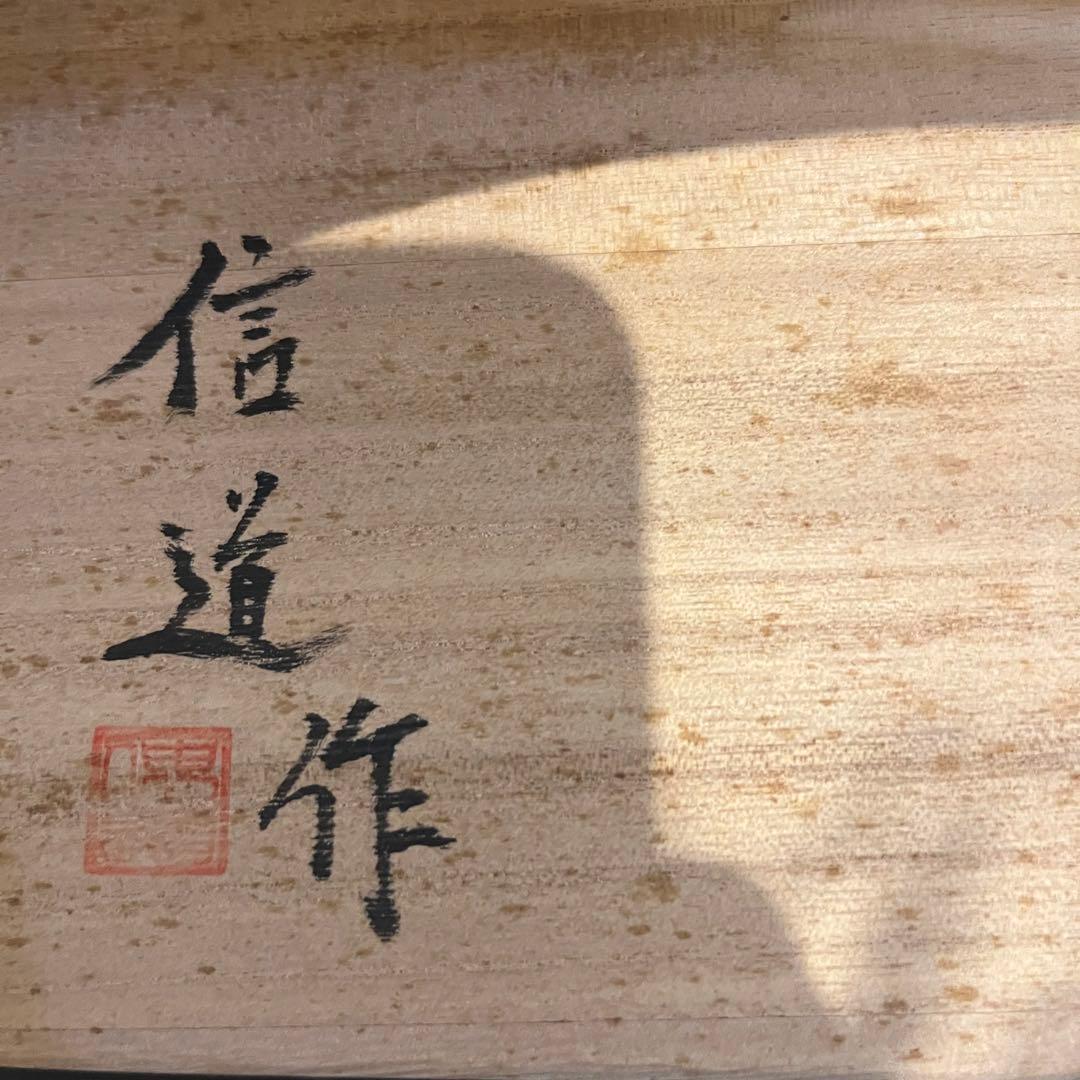 信道作